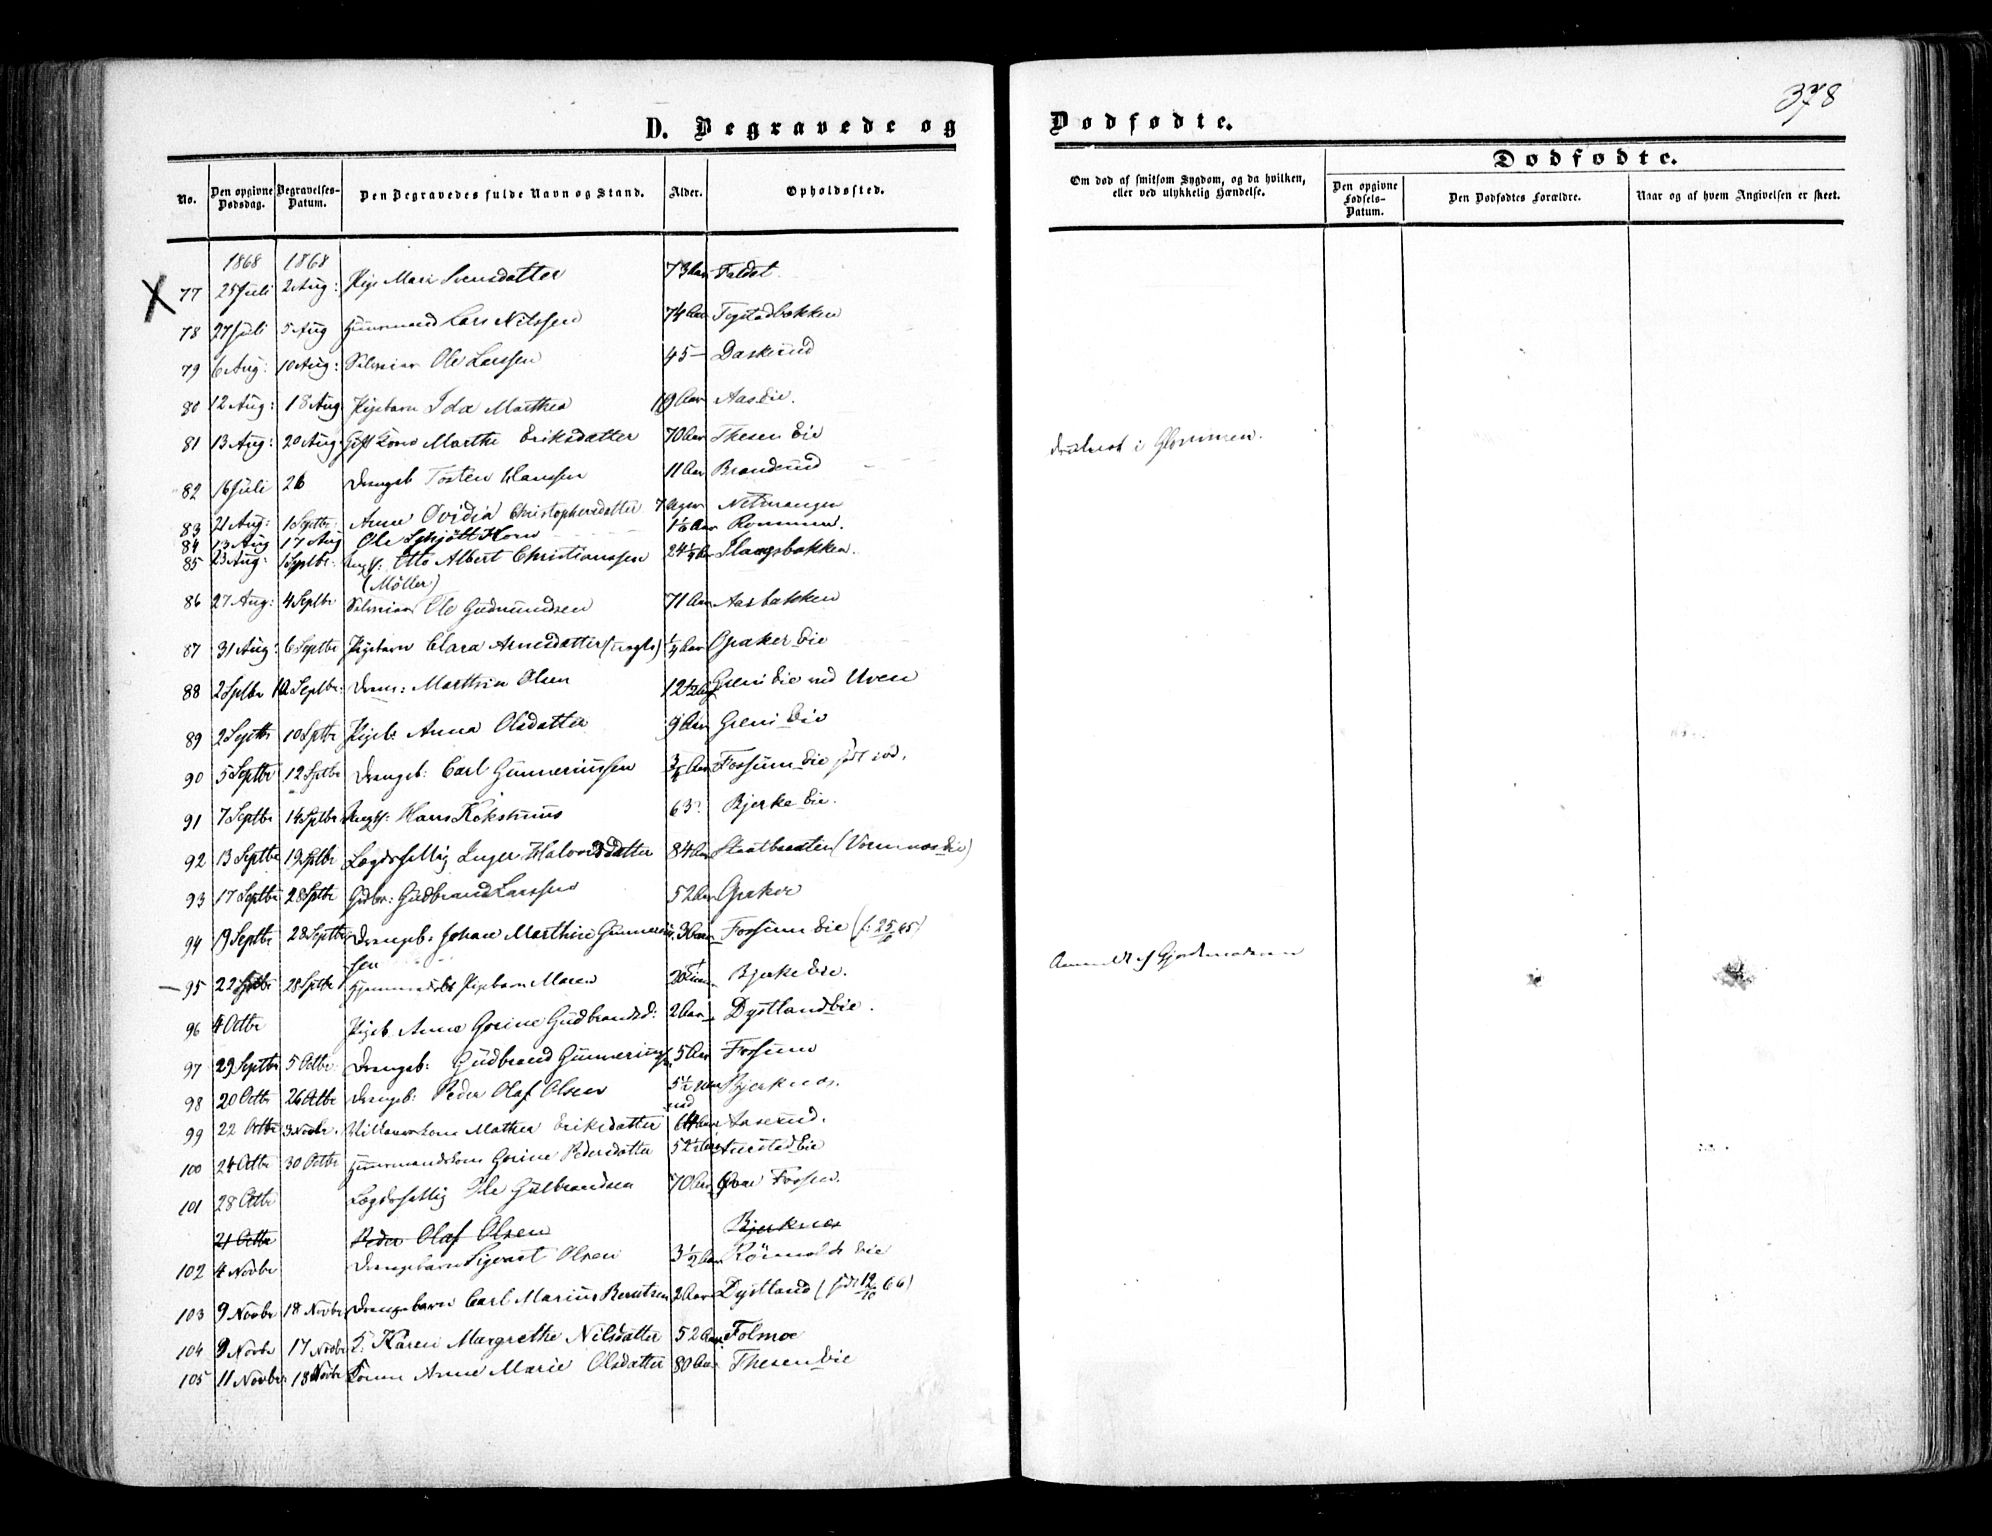 378
D. Begravede og Dødfødte.
Dødfødte.
No. Den opgivne Dødsdag. Begravelses-Datum. Den Begravedes fulde Navn og Stand. Alder. Opholdssted. Om død af smitsom Sygdom, og da hvilken, eller ved ulykkelig Hændelse. Den opgivne Fødsels-Datum. Den Dødfødtes Forældre. Naar og af hvem Angivelsen er skeet.
1868 1868
77 25 Juli 2 Aug: Pige Mari Svensdatter 73 Aar Faldet
78 27 Juli 5 Aug Huusmand Lars Nilssen 74 Aar
79 6 Aug: 10 Aug: Selveier Ole Larssen 45 – Daskerud
80 12 Aug: 18 Aug Pigebarn Ida Marthea Aar Aas Eie.
81 13 Aug: 20 Aug Gift Kone Marthe Eriksdatter 70 Aar Thesen Eie
82 16 Juli 26 Drengeb Tosten Hanssen 11 Aar Branderud druknet i Glommen.
83 21 Aug: 1 Septbr: Anne Ovidia Christophersdatter 7 Uger Netmangen
84 13 Aug 17 Aug Ole Schjøtt Horn Aar Rommun.
85 23 Aug: 1 Septbr: Ungk: Otto Albert Christianssen 24 ½ Aar Slaagsbakken.
(Møller)
86 27 Aug: 4 Septbr Selveier Ole Gudmundsen 71 Aar Aasbakken
87 31 Aug: 6 Septbr Pigebarn Clara Arnesdatter (uægte) ¼ Aar Opaker Eie
88 2 Septbr 10 Septbr: Dreng: Marthin Olsen 12 ½ Aar Greni Eie ved Uven
89 2 Septbr 10 Septbr Pigeb: Anna Olsdatter 9 Aar Greni Eie
90 5 Septbr 12 Septbr Drengeb: Carl Gunneriussen Aar Fossum Eie
91 7 Septbr 14 Septbr Ungk: Hans Kokshuus 63 Bjerke Eie.
92 13 Septbr 19 Septbr Lægdsfattig Inger Halvorsdatter 84 Aar Staatbraaten (Vormnæs Eie)
93 17 Septbr 28 Septbr Gdbr: Gudbrand Larssen 52 Aar Opaker
94 19 Septbr 28 Septbr Drengeb: Johan Marthin Gunneriussen 3 Aar Fossum Eie
95 22 Septbr 28 Septbr Hjemmedøbt Pigebarn Maren Bjerke Eie. Anmeldt af Gjordemoderen
96 4 Octbr Pigeb. Anne Gorine Gudbrandsd: 2 Aar Dystland Eie.
97 29 Septbr 5 Octbr Drengeb: Gudbrand Gunneriussen 5 Aar Fossum
98 20 Octbr 26 Octbr Drengeb: Peder Olaf Olsen 5 ½ Maaned Bjerknæs.
99 22 Octbr 3 Novbr. Kone Mathea Eriksdatter 64 Aar Aaserud.
100 24 Octbr 30 Octbr Huusmandskone Gorine Pedersdatter 52 ½ Aar Eie
101 28 Octbr Lægdsfattig Ole Gulbrandsen 70 Aar Øvre Fossen.
21 Octbr Peder Olaf Olsen Bjerknæs
102 4 Novbr Drengebarn Sigvart Olsen 3 ½ Aar Eie
103 9 Novbr 18 Novbr Drengebarn Carl Marius Berntsen 2 Aar Dystland (født 12/10 66)
104 9 Novbr 17 Novbr K: Karen Margrethe Nilsdatter 52 Aar Folmoe
105 11 Novbr 18 Novbr Konen Anne Marie Olsdatter 80 Aar Thesen Eie